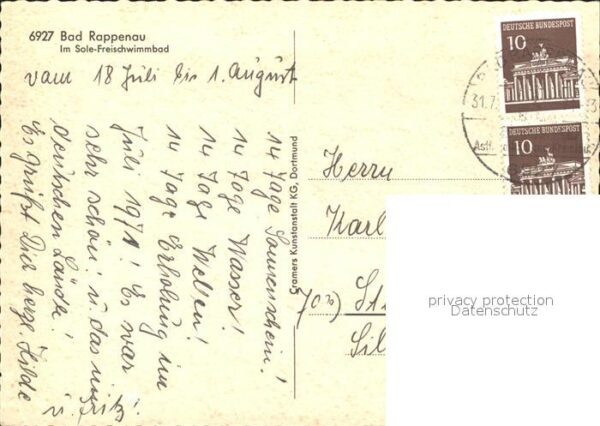 6927 Bad Rappenau
Im Sole-Freischwimmbad
vom 18 Juli bis 1. August
14 Tage Sonnenschein!
14 Tage Wasser!
14 Tage Wellen!
14 Tage Erholung im
Juli 1971! Es war
sehr schön! u. das im
deutschen Lande!
Es grüßt Dich herzl. Hilde
u. Fritz!
Cramers Kunstanstalt KG, Dortmund
DEUTSCHE BUNDESPOST
10
DEUTSCHE BUNDESPOST
10
31.7.
Herrn
Karl
privacy protection
Datenschutz